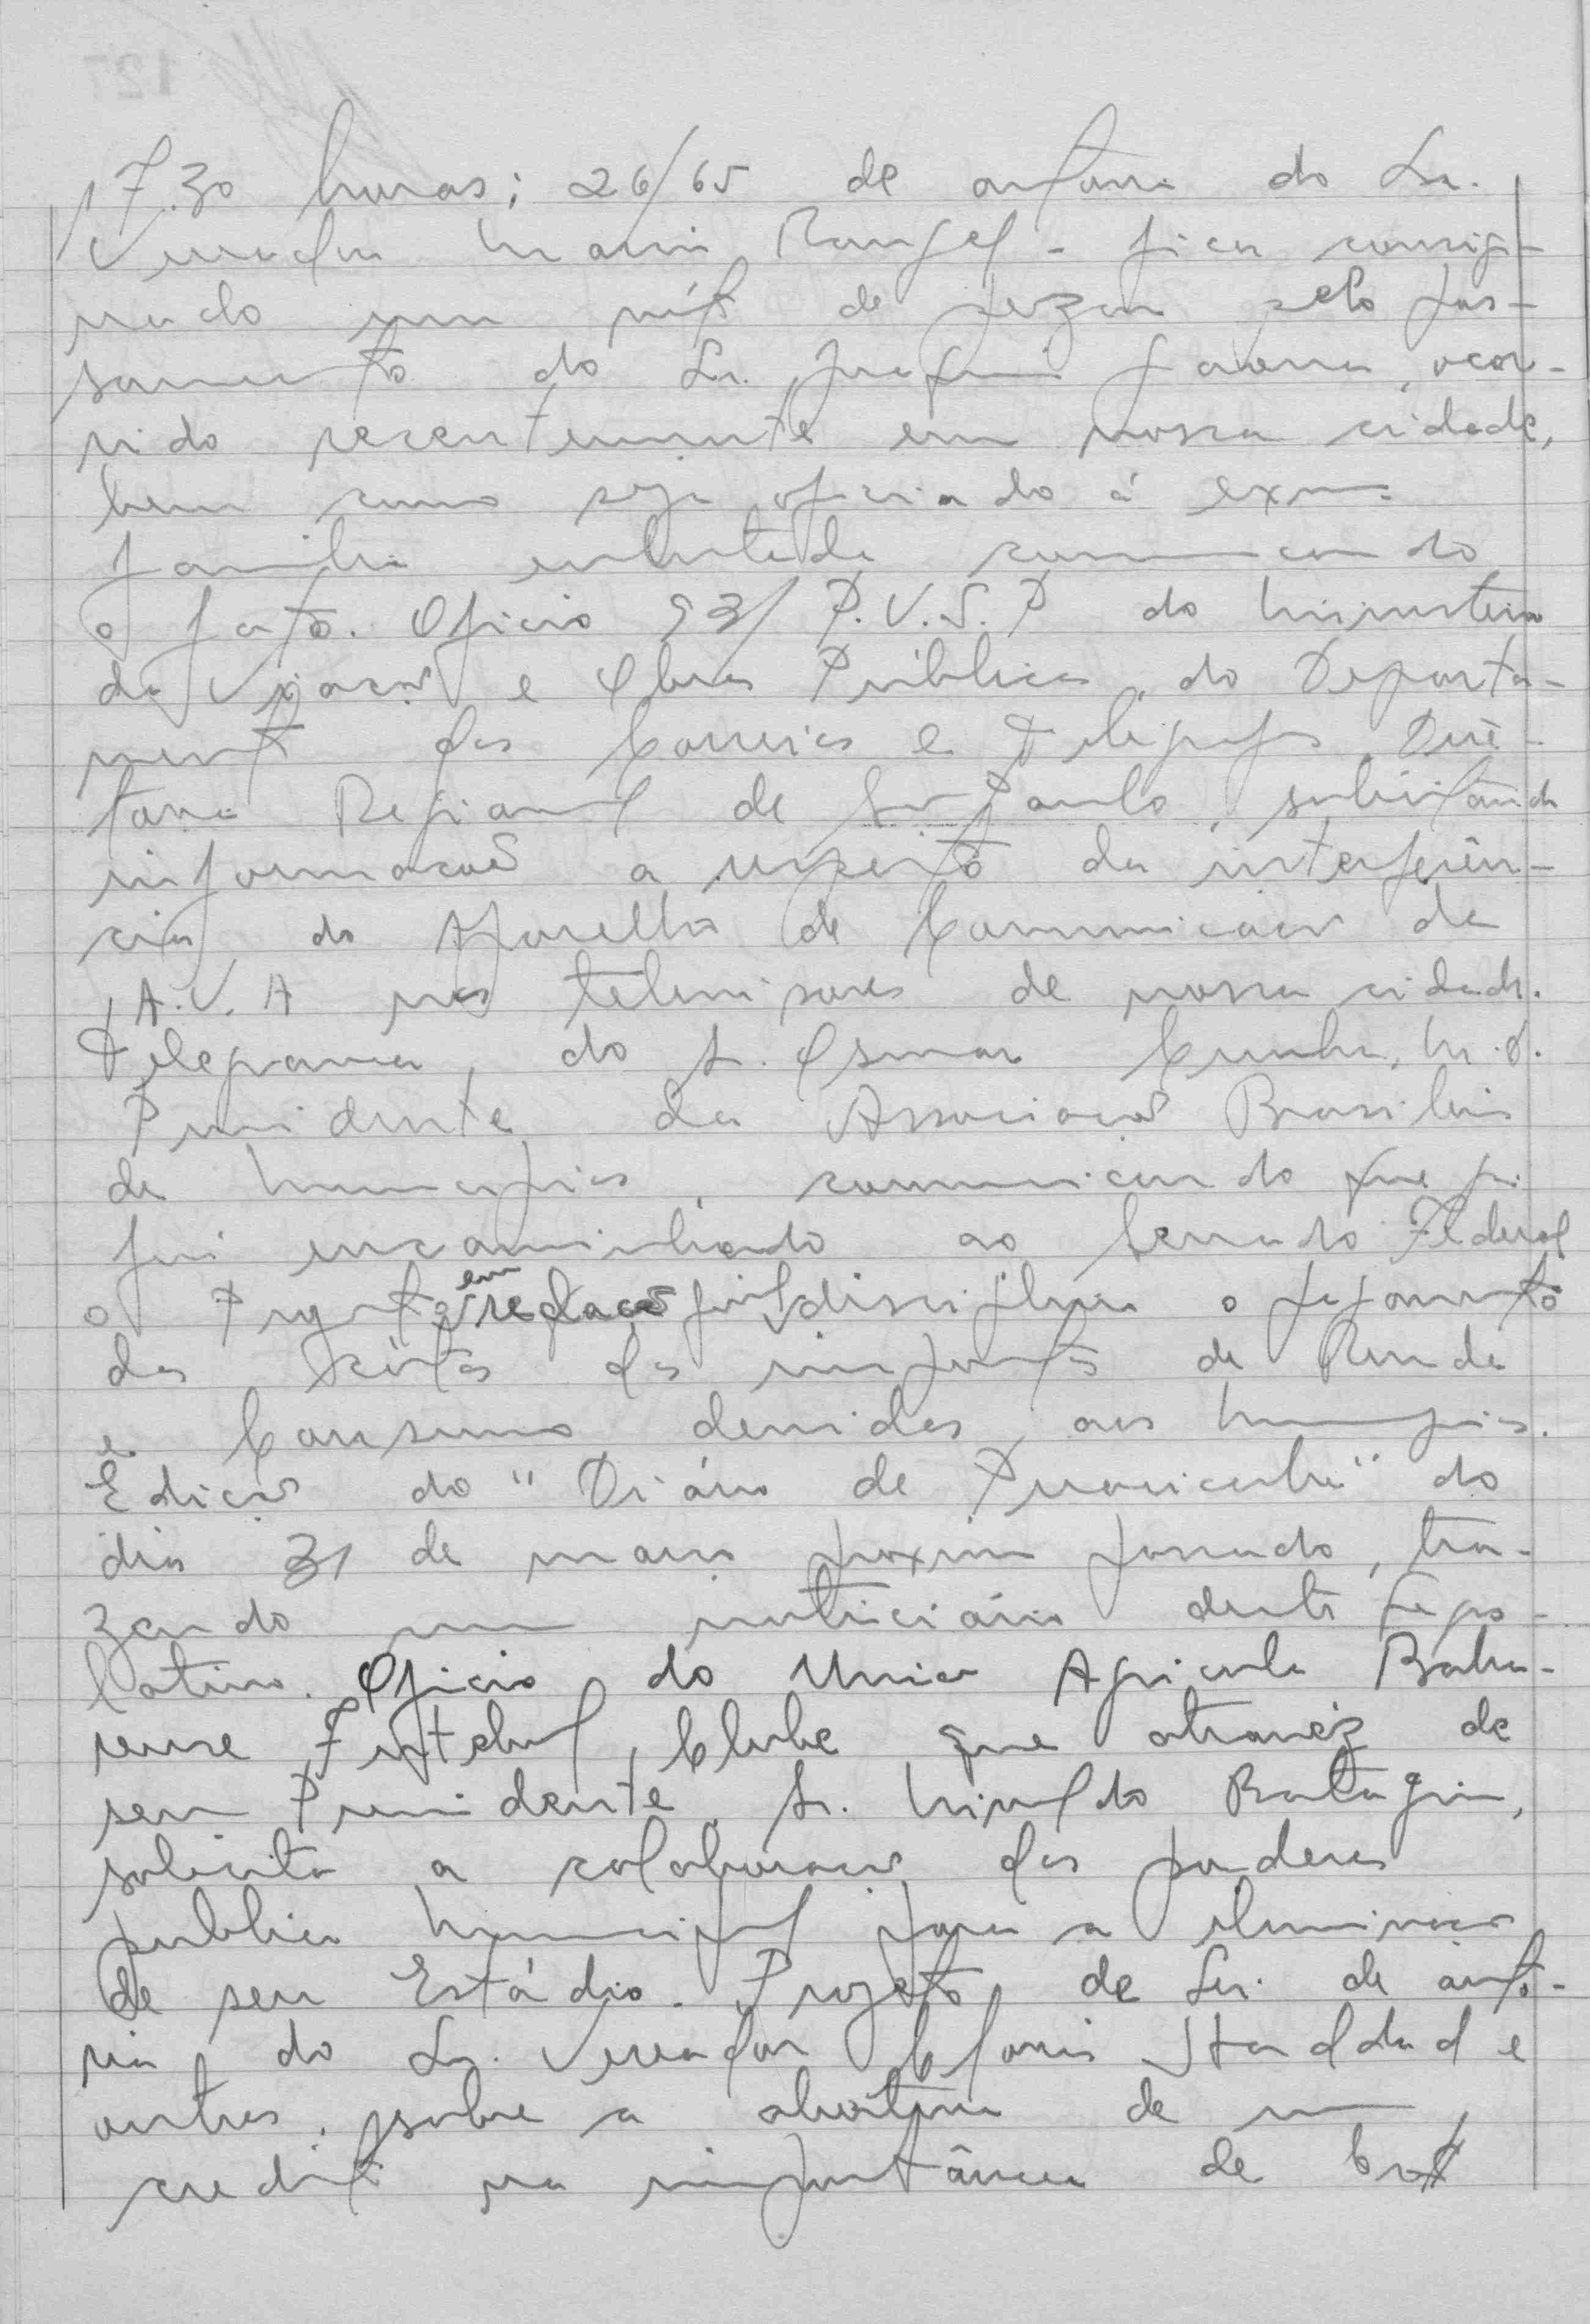 17.30 horas; 26/65 de autoria do Sr.
Vereador Mario Rangel - fica consig-
nado um voto de pezar pelo pas-
samento do Sr. ocor-
rido recentemente em nossa cidade,
bem como seja oficiado á exma
familia enlutada comunicando
o fato. Oficio 93/ P.V.S.P do Ministerio
da Viação e Obras Públicas, do Departa-
mento dos Correios e Telegrafos Dire-
toria Regional de São Paulo, solicitando
informacões a respeito da interferên-
cia do Aparelho de Comunicação da
A.V.A nos televisores de nossa cidade.
Telegrama, do Sr. Osmar Cunha, M.D.
Presidente da Associação Brasileira
de Municipios, comunicando que foi
foi encaminhado ao Senado Federal
o Projeto em redação final disciplina o pagamento
das cotas dos impostos de Renda
e Consumo devidas aos Municipios.
Edição do "Diário de Piracicaba" do
dia 31 de maio proximo passado, tra-
zendo um noticiário deste Legis-
lativo. Oficio do União Agricola Barba-
rense Futebol Clube que atravéz de
seu Presidente, Sr. Batagin,
solicita a colaboração dos poderes
publico Municipal para a iluminação
de seu Estádio. Projeto de Lei de auto-
ria do Sr. Vereador e
outros, sobre a abertura de um
credito na importância de Cr$